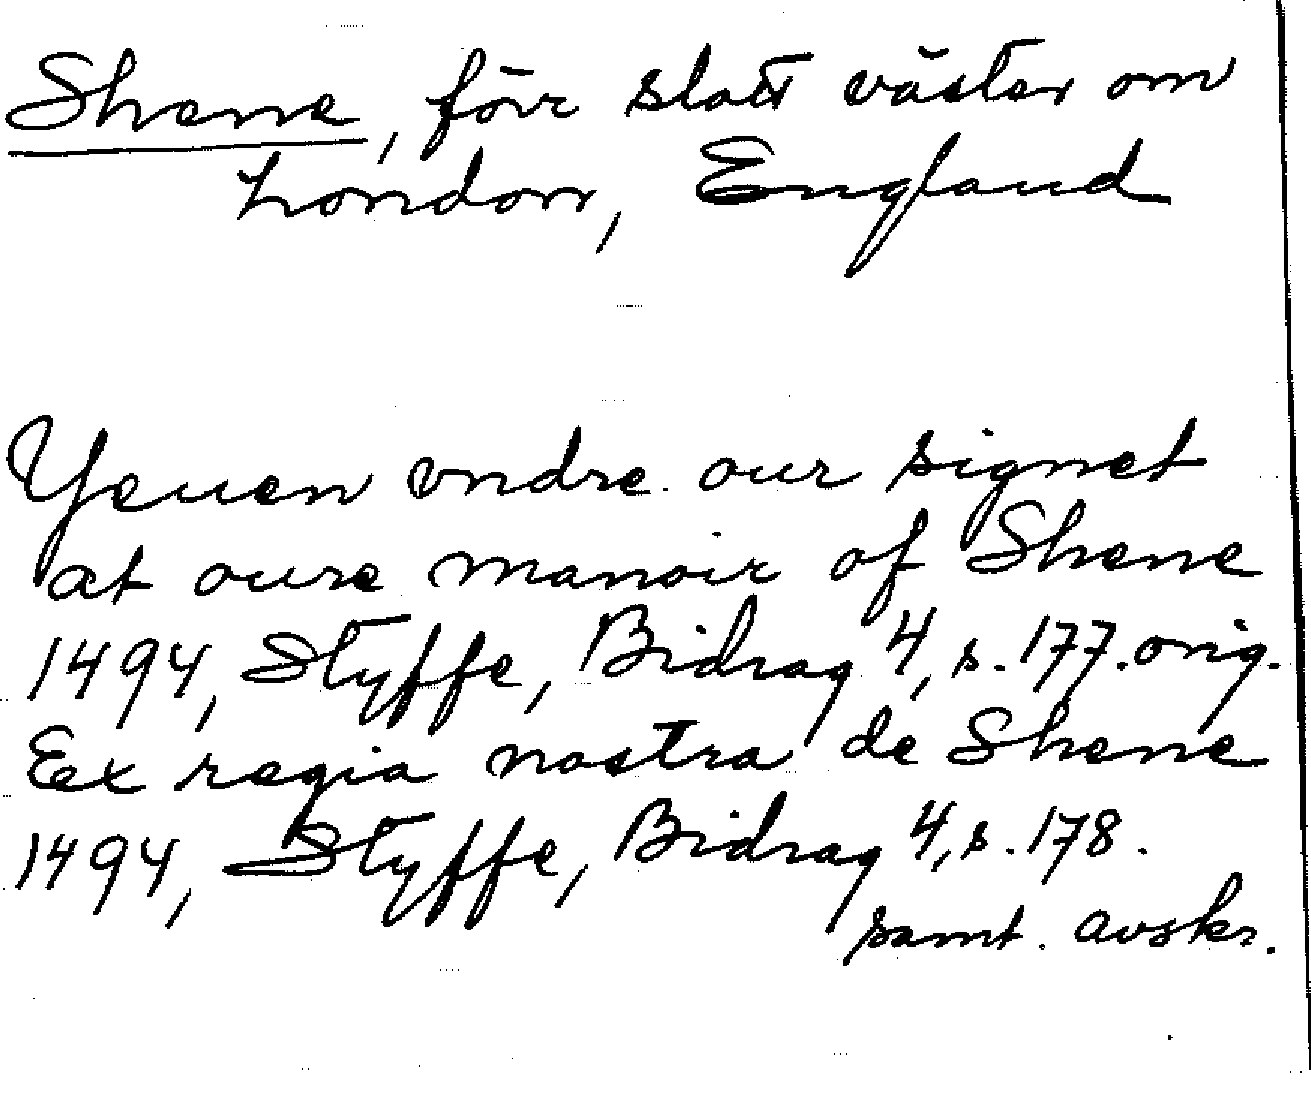 Shene, förr slott väster om
London, England
Yeuen vndre our signet
at oure manoir of Shene
1494, Styffe, Bidrag 4, s. 177. orig.
Ex regia nostra de Shene
1494, Styffe, Bidrag 4, s. 178.
samt. avskr.